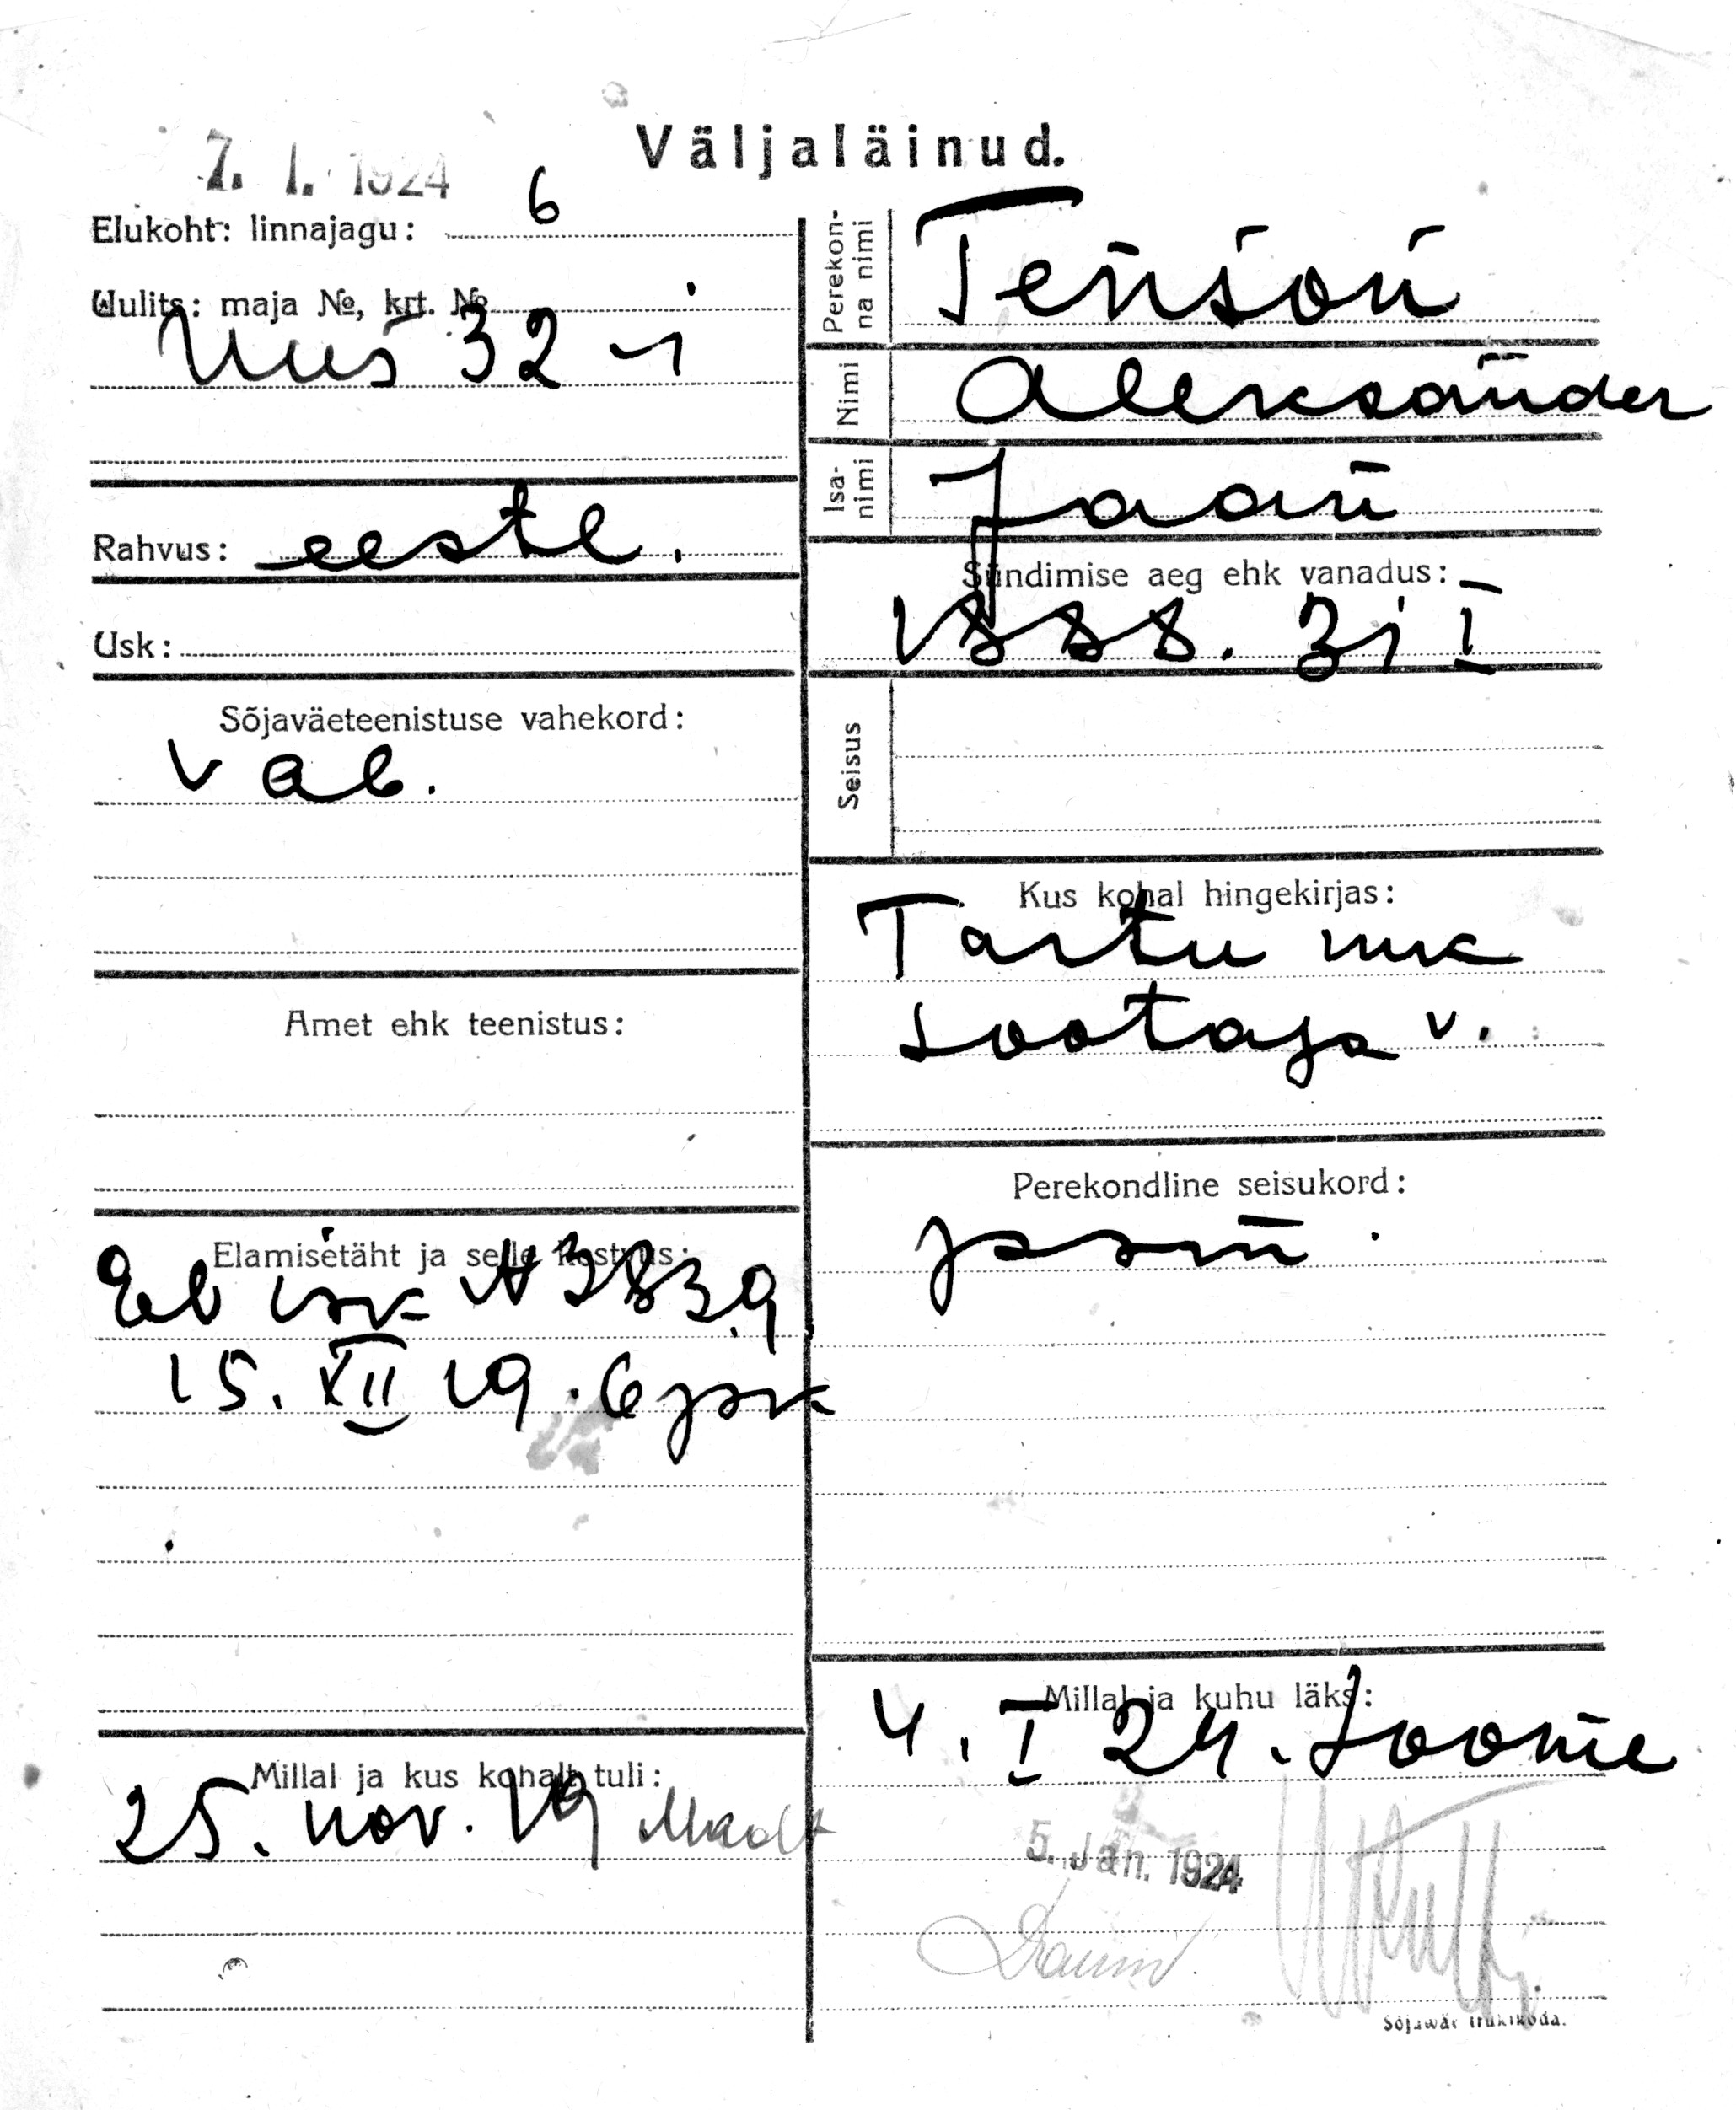 Väljaläinud.
7. 1. 1924
Elukoht: linnajagu: 6
Uulits: maja №, krt. №
Uus 32 - 1
Rahvus: eestl.
Usk:
Sõjaväeteenistuse vahekord:
vab.
Amet ehk teenistus:
Elamisetäht ja selle kestvus:
El isk N 3839
15. XII 19. 6 jsk
Millal ja kus kohalt tuli:
25. nov. 19 Maalt
Perekonna nimi Tenson
Nimi Aleksander
Isanimi Jaan
Sündimise aeg ehk vanadus:
1888. 31 I
Seisus
Kus kohal hingekirjas:
Tartu mk
Sootaga v.
Perekondline seisukord:
Millal ja kuhu läks:
4. I 24. Soome
5. Jan. 1924
Sõjawäe trükikoda.